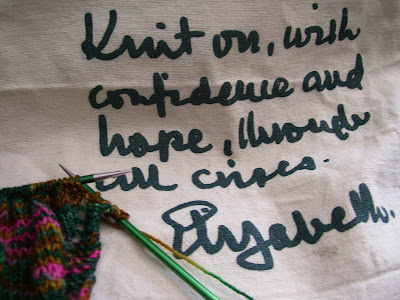 Knit on, with
confidence and
hope, through
all crises.
Elizabeth.